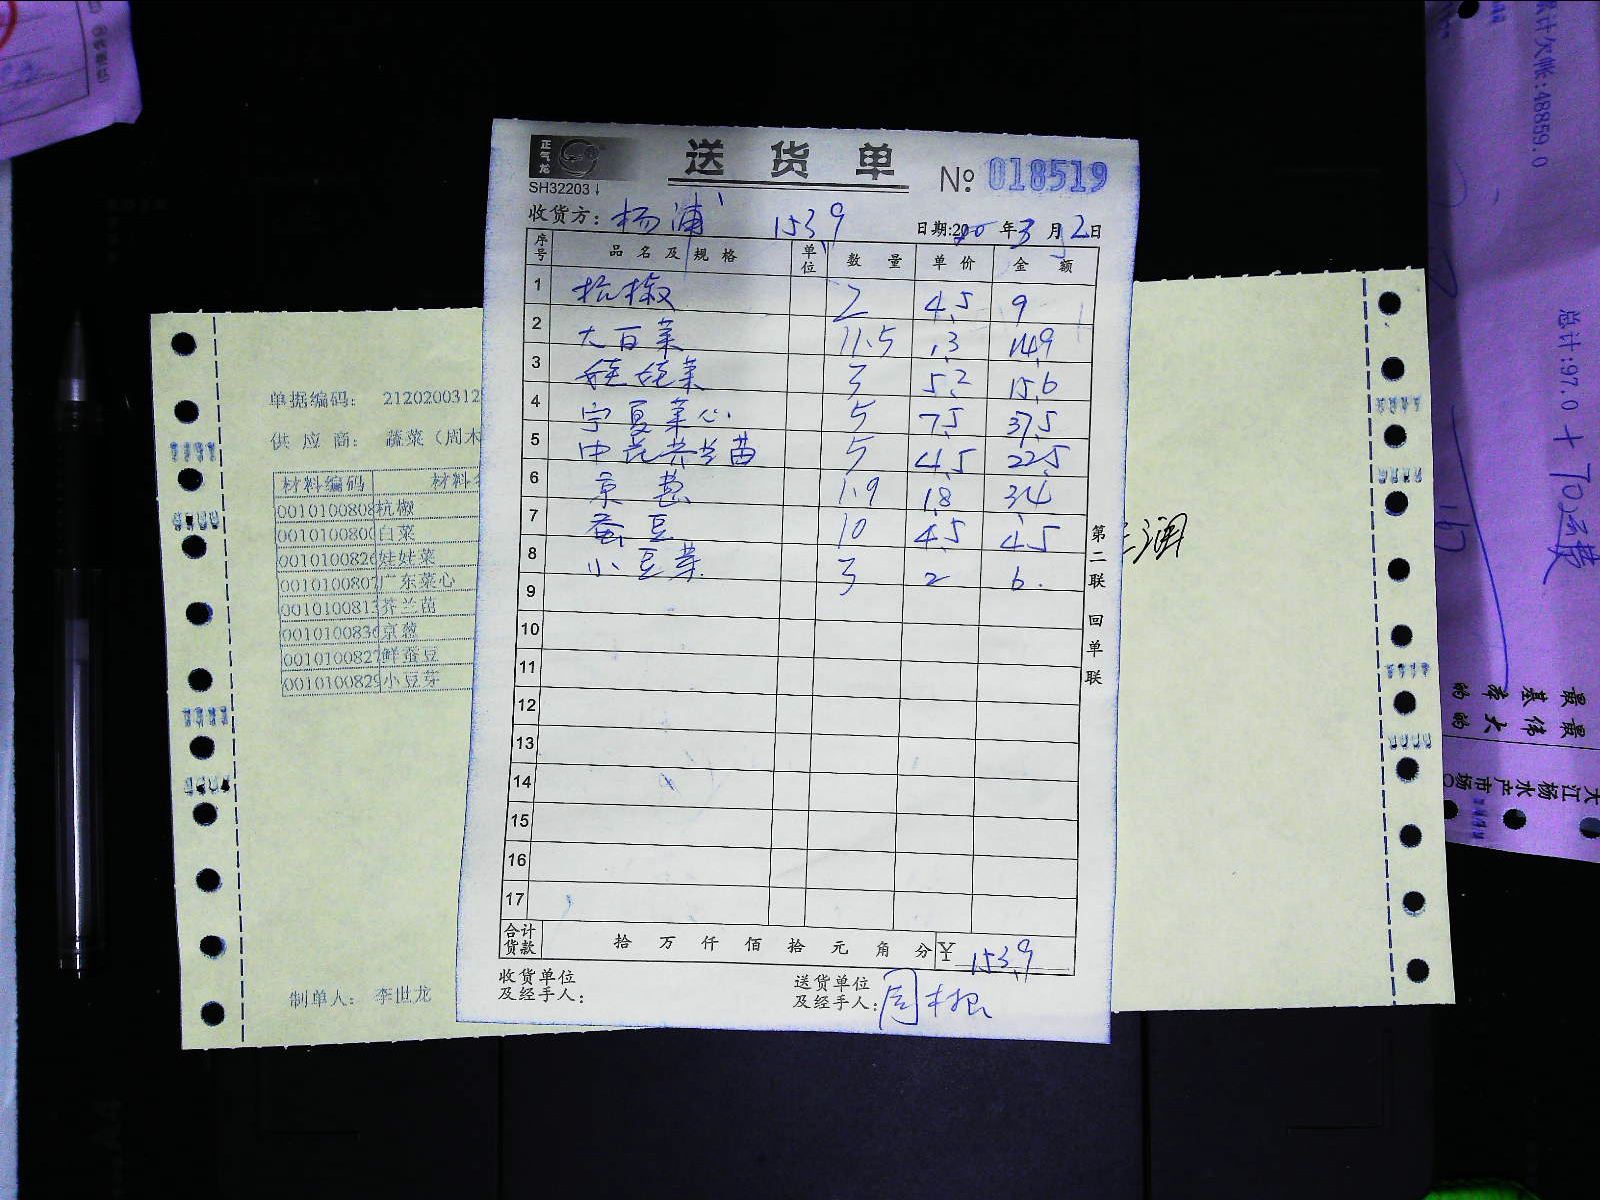 正气龙
送货单
SH32203
№ 018519
收货方: 杨浦 153.9
日期:2020年3月12日
序号 品名及规格 单位 数量 单价 金额
1 杭椒 2 4.5 9
2 大百菜 11.5 1.3 14.9
3 娃娃菜 3 5.2 15.6
4 宁夏菜心 5 7.5 37.5
5 中花芥兰苗 5 4.5 22.5
6 京葱 1.9 1.8 3.4
7 蚕豆 10 4.5 45
8 小豆芽 3 2 6.
9
10
11
12
13
14
15
16
17
合计货款 拾万仟佰拾元角分 ¥ 153.9
收货单位及经手人:
送货单位及经手人: 周木根
第二联 回单联
单据编码: 2120200312
供应商: 蔬菜(周木
材料编码 材料
0010100808 杭椒
001010080 白菜
001010082 娃娃菜
001010080 广东菜心
001010081 芥兰苗
001010083 京葱
001010082 鲜蚕豆
001010082 小豆芽
制单人: 李世龙
润
累计欠帐:48859.0
总计:97.0 + 70运费
最基
最伟大的
大江杨水产市场